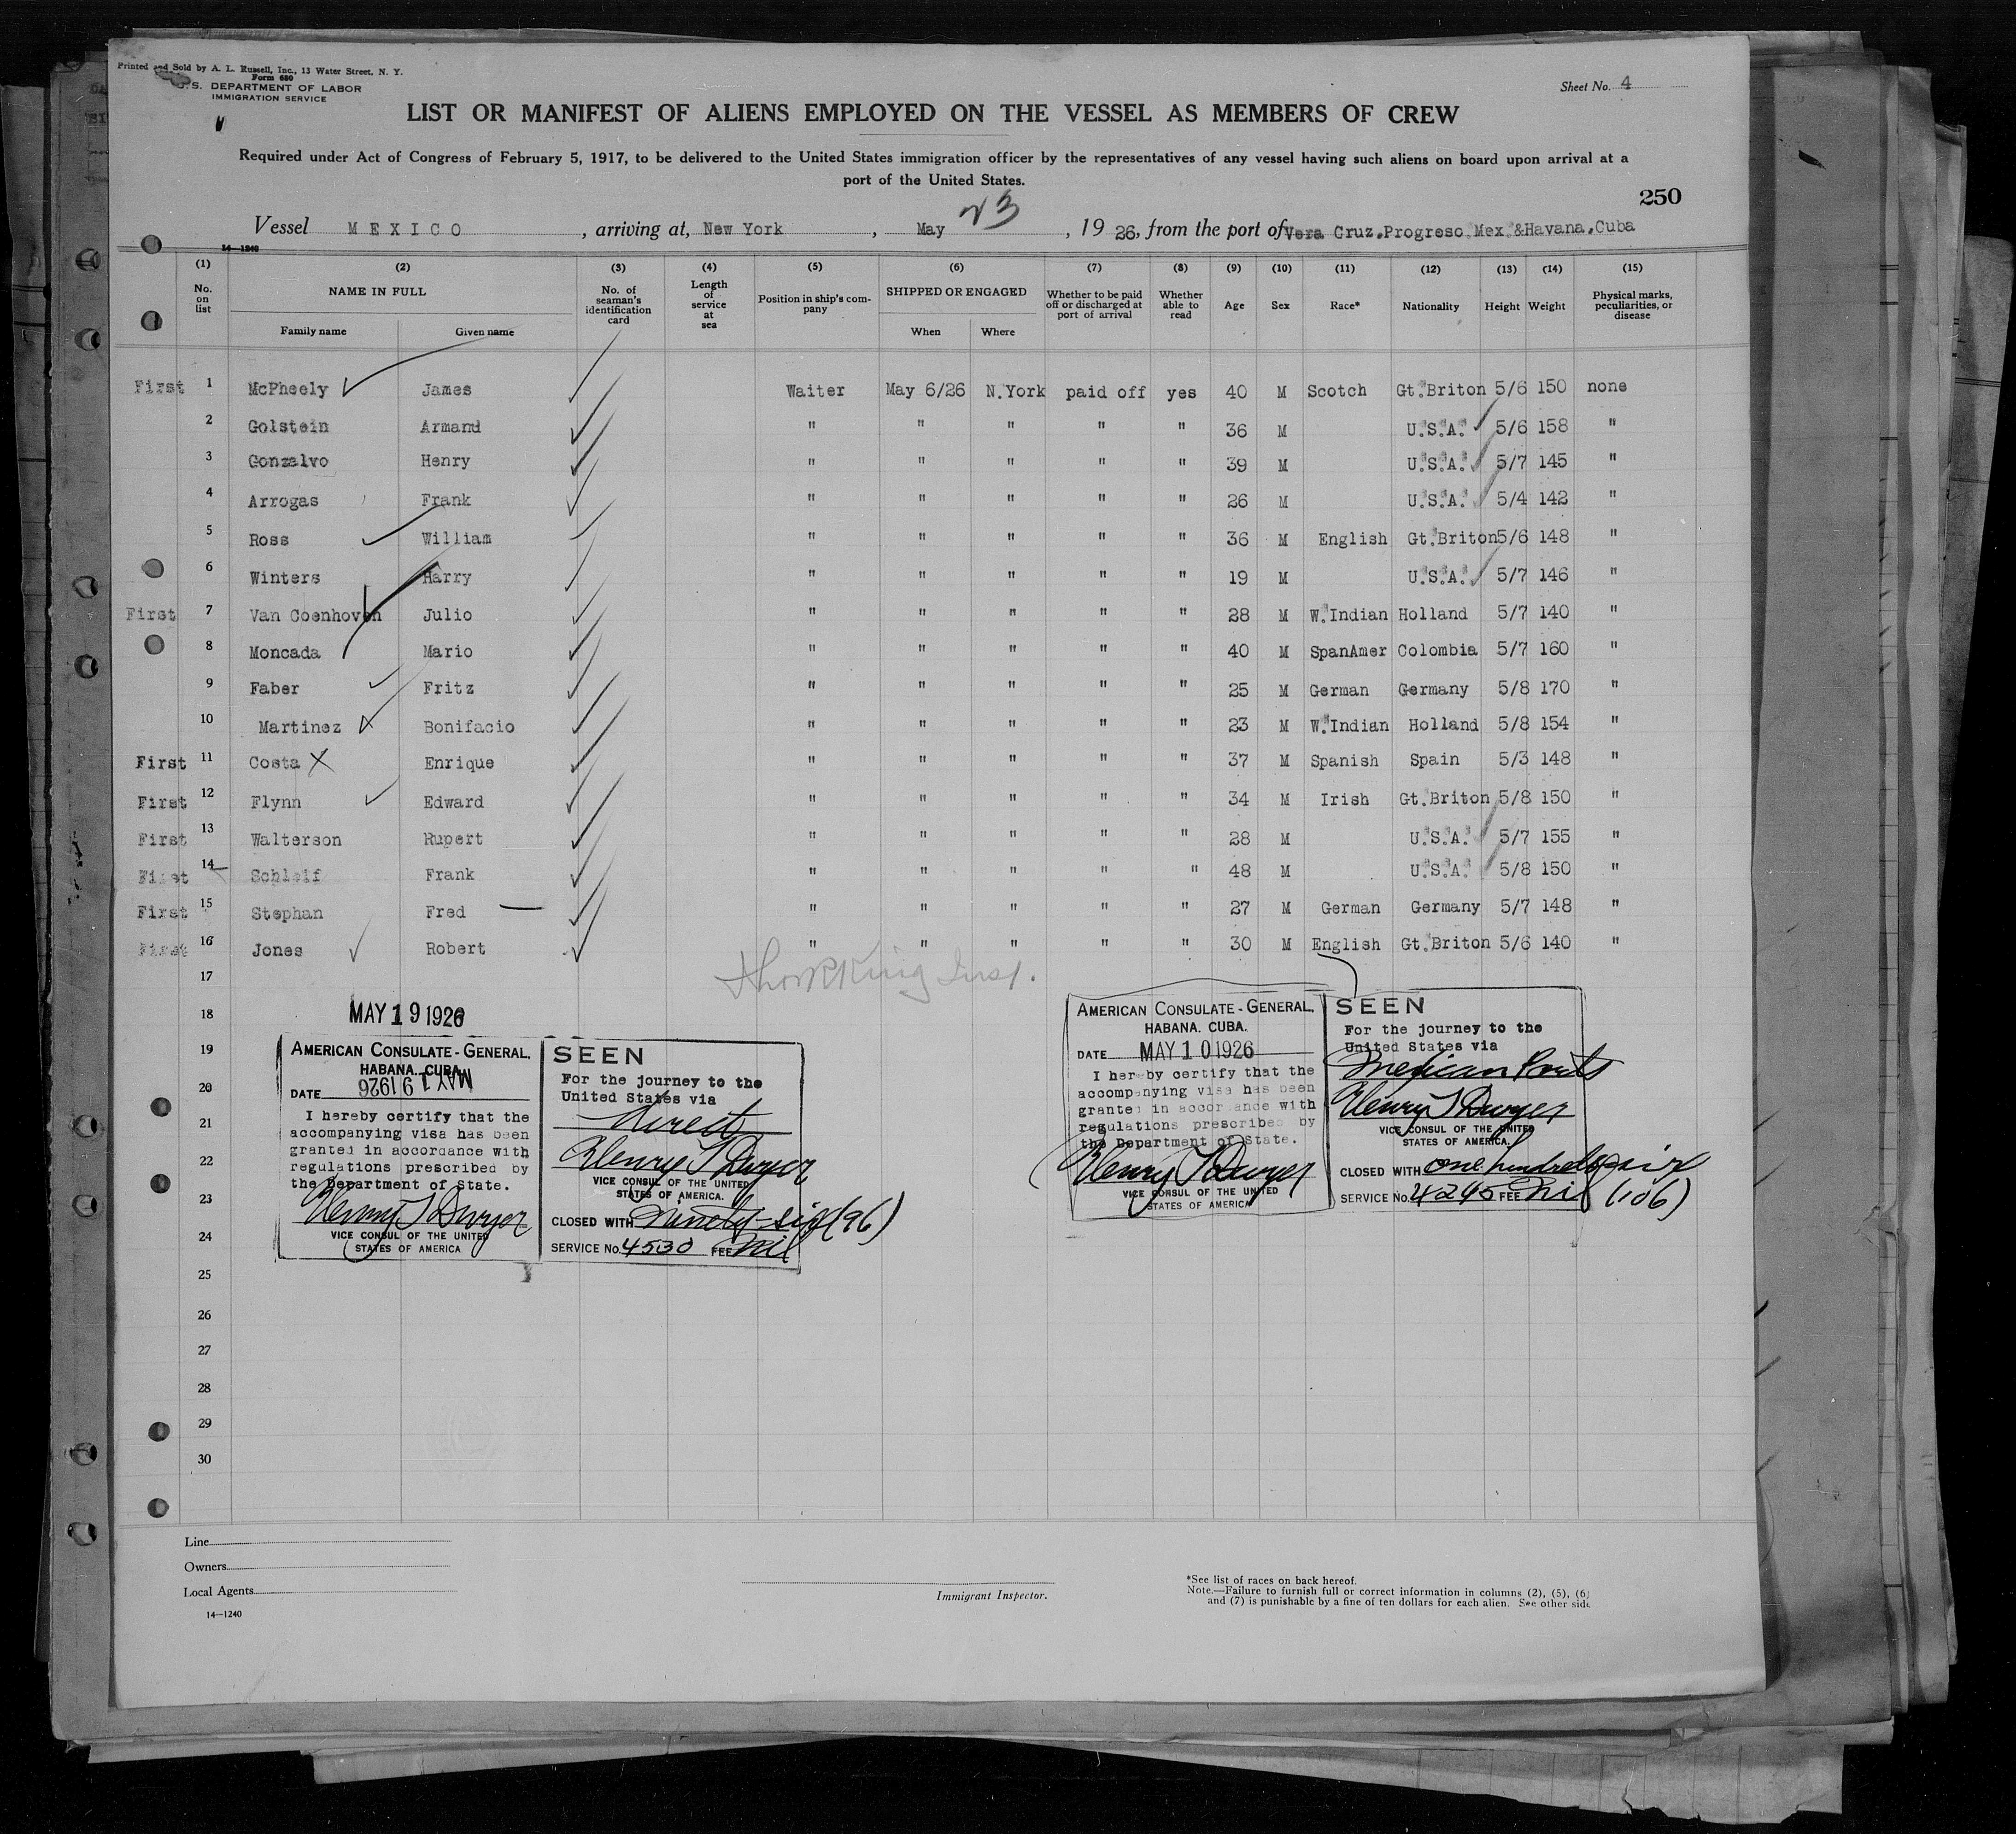 Printed and Sold by A. L. Russell, Inc., 13 Water Street, N. Y.
Form 680
U.S. DEPARTMENT OF LABOR
IMMIGRATION SERVICE
Sheet No. 4
LIST OR MANIFEST OF ALIENS EMPLOYED ON THE VESSEL AS MEMBERS OF CREW
Required under Act of Congress of February 5, 1917, to be delivered to the United States immigration officer by the representatives of any vessel having such aliens on board upon arrival at a
port of the United States.
250
Vessel MEXICO, arriving at, New York, May 23, 1926, from the port of Vera Cruz.Progreso Mex.&Havana,Cuba
14-1240
(1) (2) (3) (4) (5) (6) (7) (8) (9) (10) (11) (12) (13) (14) (15)
No. on list
NAME IN FULL
Family name Given name
No. of seaman's identification card
Length of service at sea
Position in ship's company
SHIPPED OR ENGAGED
When Where
Whether to be paid off or discharged at port of arrival
Whether able to read
Age Sex Race* Nationality Height Weight
Physical marks, peculiarities, or disease
First 1 McPheely James Waiter May 6/26 N.York paid off yes 40 M Scotch Gt.Briton 5/6 150 none
2 Golstein Armand " " " " " 36 M U.S.A. 5/6 158 "
3 Gonzalvo Henry " " " " " 39 M U.S.A. 5/7 145 "
4 Arrogas Frank " " " " " 26 M U.S.A. 5/4 142 "
5 Ross William " " " " " 36 M English Gt.Briton 5/6 148 "
6 Winters Harry " " " " " 19 M U.S.A. 5/7 146 "
First 7 Van Coenhoven Julio " " " " " 28 M W.Indian Holland 5/7 140 "
8 Moncada Mario " " " " " 40 M SpanAmer Colombia 5/7 160 "
9 Faber Fritz " " " " " 25 M German Germany 5/8 170 "
10 Martinez Bonifacio " " " " " 23 M W.Indian Holland 5/8 154 "
First 11 Costa Enrique " " " " " 37 M Spanish Spain 5/3 148 "
First 12 Flynn Edward " " " " " 34 M Irish Gt.Briton 5/8 150 "
First 13 Walterson Rupert " " " " " 28 M U.S.A. 5/7 155 "
First 14 Schleif Frank " " " " " 48 M U.S.A. 5/8 150 "
First 15 Stephan Fred " " " " " 27 M German Germany 5/7 148 "
First 16 Jones Robert " " " " " 30 M English Gt.Briton 5/6 140 "
17
18
19
20
21
22
23
24
25
26
27
28
29
30
MAY 19 1926
AMERICAN CONSULATE-GENERAL,
HABANA. CUBA.
DATE MAY 19 1926
I hereby certify that the
accompanying visa has been
granted in accordance with
regulations prescribed by
the Department of State.
Henry T Dwyer
VICE CONSUL OF THE UNITED
STATES OF AMERICA
SEEN
For the journey to the
United States via
direct
Henry T Dwyer
VICE CONSUL OF THE UNITED
STATES OF AMERICA.
CLOSED WITH Ninety-six (96)
SERVICE No. 4530 FEE Nil
AMERICAN CONSULATE-GENERAL,
HABANA. CUBA.
DATE MAY 10 1926
I hereby certify that the
accompanying visa has been
granted in accordance with
regulations prescribed by
the Department of State.
Henry T Dwyer
VICE CONSUL OF THE UNITED
STATES OF AMERICA
SEEN
For the journey to the
United States via
Mexican Ports
Henry T Dwyer
VICE CONSUL OF THE UNITED
STATES OF AMERICA.
CLOSED WITH one hundred six
SERVICE No. 4245 FEE Nil (106)
Line
Owners
Local Agents
14-1240
Immigrant Inspector.
*See list of races on back hereof.
Note.—Failure to furnish full or correct information in columns (2), (5), (6)
and (7) is punishable by a fine of ten dollars for each alien. See other side